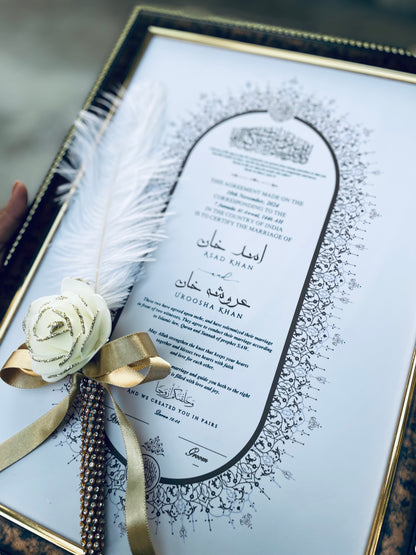 THIS AGREEMENT MADE ON THE
10th November, 2024
CORRESPONDING TO THE
7 Jumada al-Awwal, 1446 AH
IN THE COUNTRY OF INDIA
IS TO CERTIFY THE MARRIAGE OF
اسد خان
ASAD KHAN
and
عروشه خان
UROOSHA KHAN
These two have agreed upon mehr, and have solemnized their marriage
in front of two witnesses. They agree to conduct their marriage according
to Islamic law, Quran and Sunnah of prophet S.A.W.
May Allah strengthen the knot that keeps your hearts
together and blesses two hearts with faith
and love for each other.
marriage and guide you both to the right
is filled with love and joy.
وخلقناكم أزواجا
AND WE CREATED YOU IN PAIRS
Groom